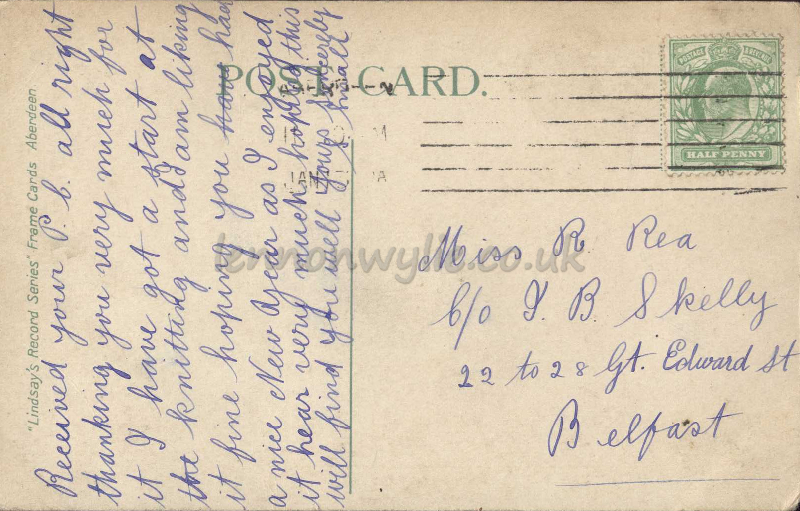 "Lindsay's Record Series' Frame Cards Aberdeen
POST CARD.
POSTAGE REVENUE
HALF PENNY
Received your P. C. all right
thanking you very much for
it I have got a start at
the knitting and am liking
it fine hoping you have had
a nice New Year as I enjoyed
it hear very much hoping this
will find you well yours sincerely
Miss R Rea
C/o J. B Skelly
22 to 28 Gt. Edward St
Belfast
lennonwylie.co.uk